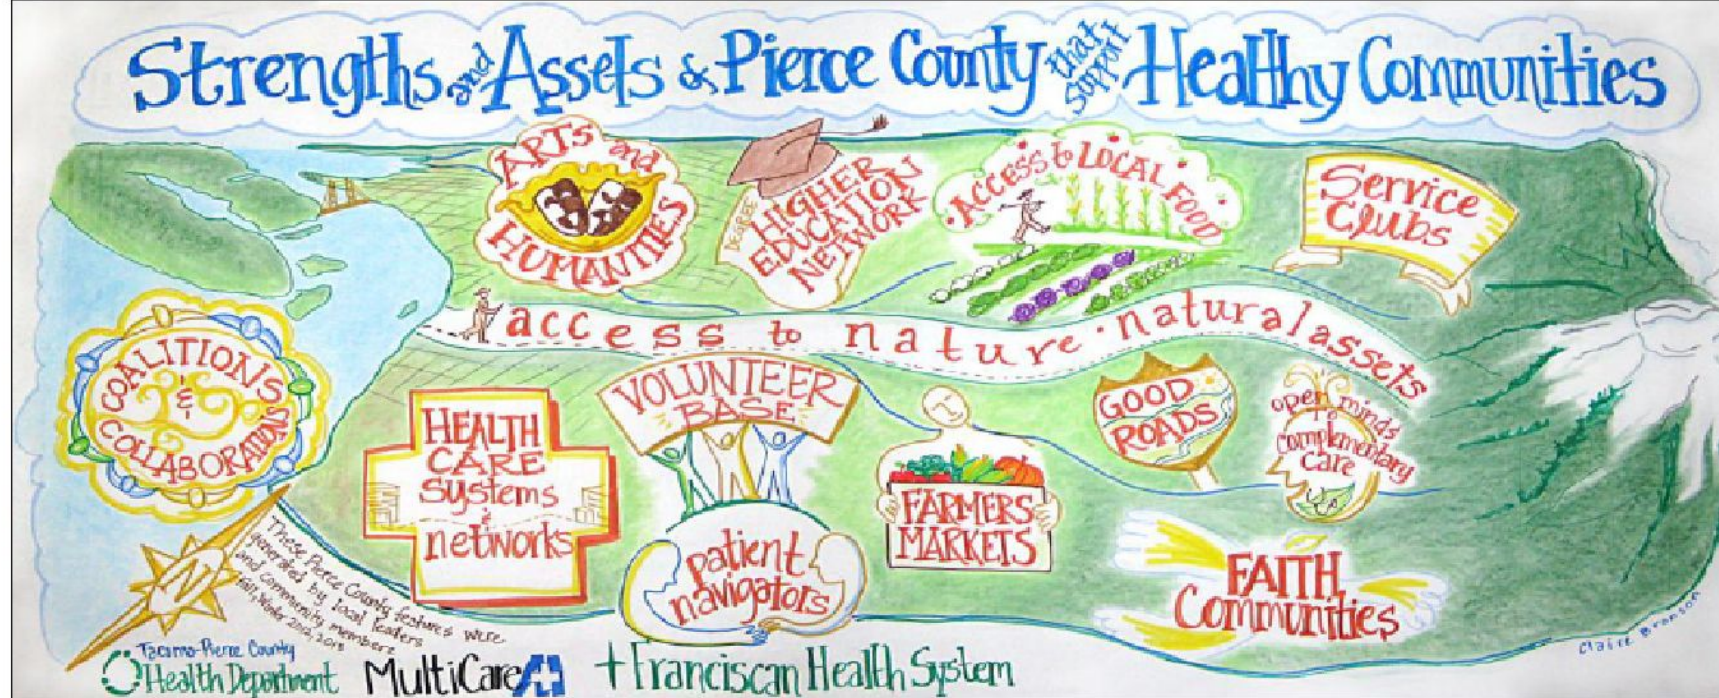 Strengths and Assets of Pierce County that support Healthy Communities
ARTS and
HUMANITIES
DEGREE
HIGHER
EDUCATION
NETWORK
ACCESS to LOCAL FOOD
Service
Clubs
access to nature · natural assets
COALITIONS
&
COLLABORATIONS
HEALTH
CARE
Systems
&
networks
VOLUNTEER
BASE
patient
navigators
FARMERS
MARKETS
GOOD
ROADS
open minds
to
complementary
care
FAITH
Communities
N
These Pierce County features were
generated by local leaders
and community members
Fall, Winter 2012, 2013
Tacoma-Pierce County
Health Department
MultiCare
Franciscan Health System
Claire Bronson